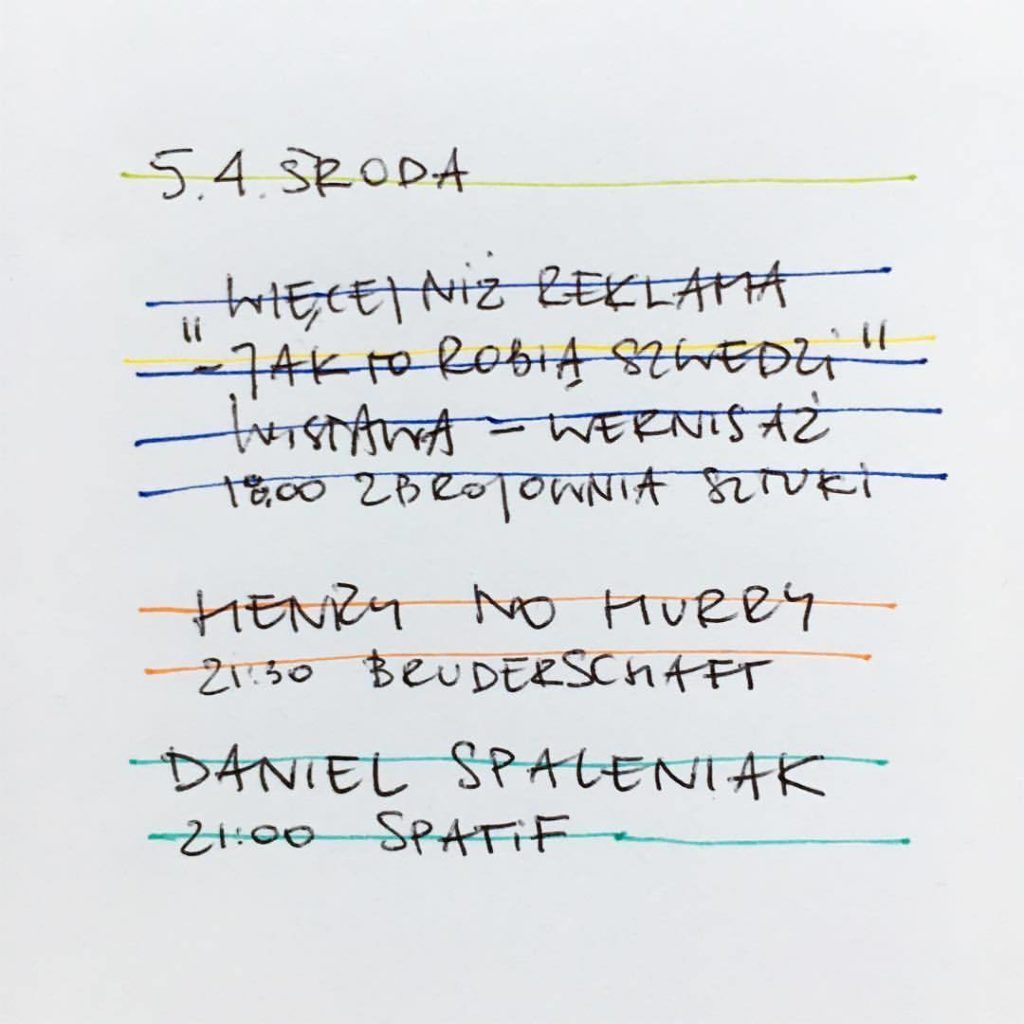 5.4. ŚRODA
WIĘCEJ NIŻ REKLAMA
"- JAK TO ROBIĄ SZWEDZI"
WYSTAWA - WERNISAŻ
18:00 ZBROJOWNIA SZTUKI
HENRY NO HURRY
21:30 BRUDERSCHAFT
DANIEL SPALENIAK
21:00 SPATiF